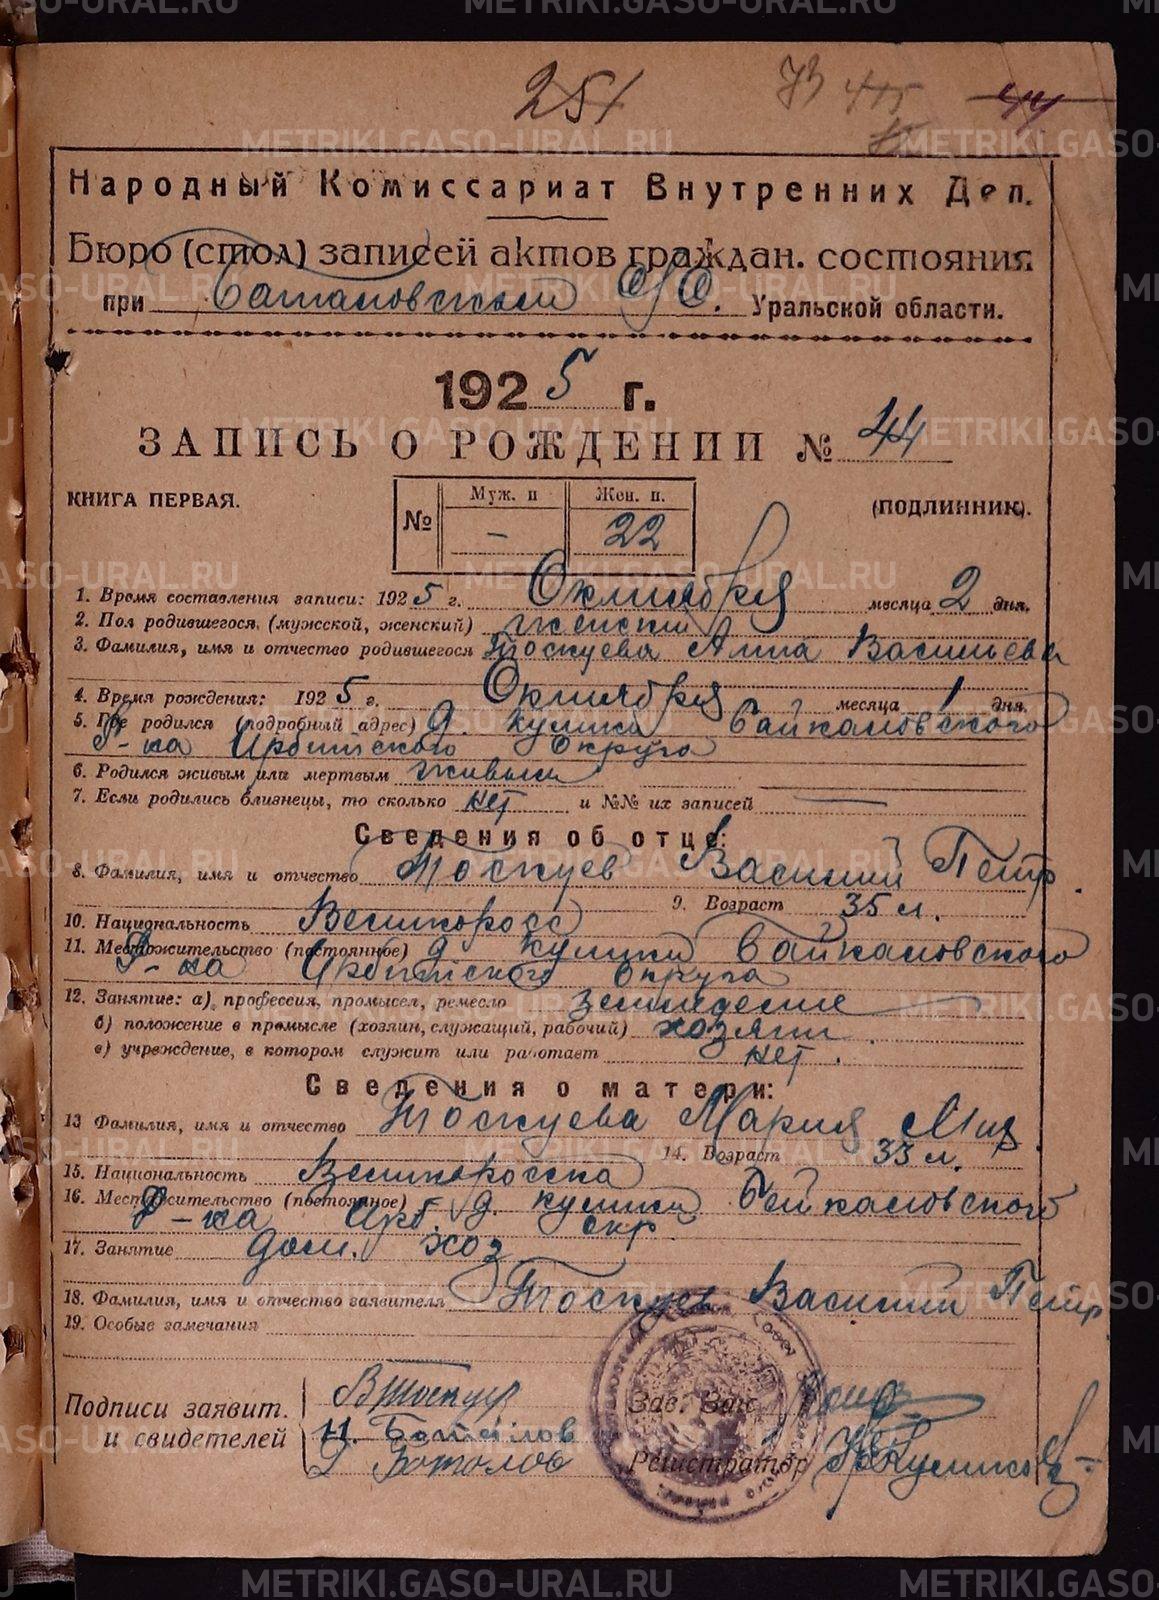 251 73 415 44
Народный Комиссариат Внутренних Дел.
Бюро (стол) записей актов граждан. состояния
при Уральской области.
1925 г.
ЗАПИСЬ О РОЖДЕНИИ № 44
КНИГА ПЕРВАЯ. (ПОДЛИННИК).
№ Муж. п Жен. п.
- 22
1. Время составления записи: 1925 г. Октября месяца 2 дня.
2. Пол родившегося (мужской, женский) женский
3. Фамилия, имя и отчество родившегося Тоскуева Анна Васильева
4. Время рождения: 1925 г. Октября месяца 1 дня.
5. Где родился (подробный адрес) д. Кулики Байкаловского
Р-на Ирбитского Округа
6. Родился живым или мертвым живым
7. Если родились близнецы, то сколько нет и №№ их записей —
Сведения об отце:
8. Фамилия, имя и отчество Тоскуев Василий Петр.
9. Возраст 35 л.
10. Национальность Великоросс
11. Местожительство (постоянное) д Кулики Байкаловского
Р-на Ирбитского Округа
12. Занятие: а) профессия, промысел, ремесло земледелие
б) положение в промысле (хозяин, служащий, рабочий) хозяин
в) учреждение, в котором служит или работает нет.
Сведения о матери:
13 Фамилия, имя и отчество Тоскуева Мария Мих.
14. Возраст 33 л.
15. Национальность Великоросска
16. Местожительство (постоянное) д. Кулики Байкаловского
Р-на Ирб. окр.
17. Занятие дом. хоз
18. Фамилия, имя и отчество заявителя Тоскуев Василий Петр
19. Особые замечания
Подписи заявит. ВТоскуев Зав. Заг.
и свидетелей
Регистратор
METRIKI.GASO-URAL.RU